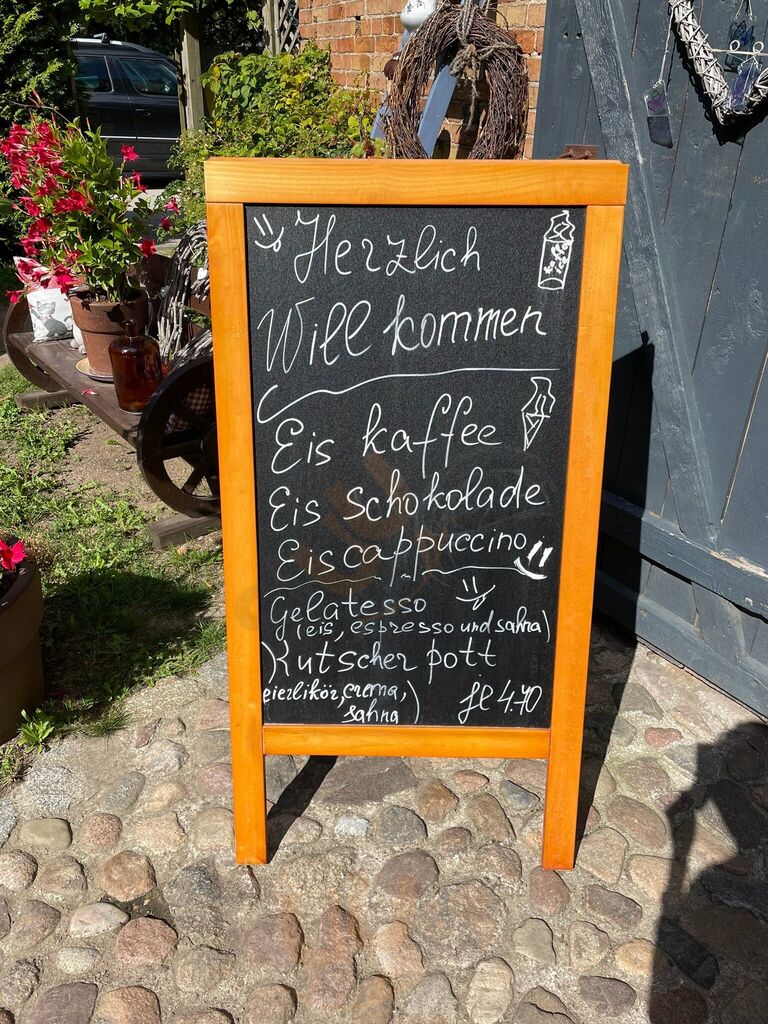 Herzlich
Will kommen
Eis kaffee
Eis Schokolade
Eis cappuccino
Gelatesso
(eis, espresso und sahna)
Kutscher pott
eierlikör, crema,)
sahna je 4.70